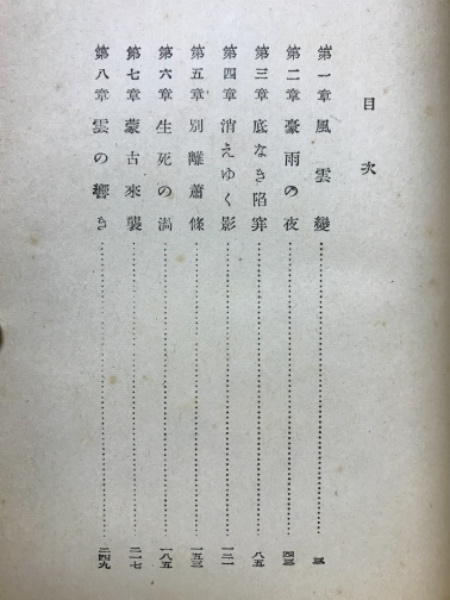 目次
第一章 風雲變……三
第二章 豪雨の夜……四三
第三章 底なき陷穽……八五
第四章 消えゆく影……一二一
第五章 別離蕭條……一五三
第六章 生死の渦……一八五
第七章 蒙古來襲……二一七
第八章 雲の響き……二四九